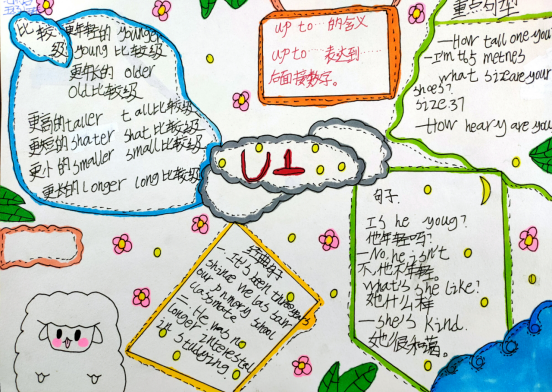 比较级
更年轻的 younger
young 比较级
更年长的 older
old比较级
更高的taller tall比较级
更短的shater shat比较级
更小的smaller small比较级
更长的longer long比较级
up to…的含义
up to……表达到……
后面接数字。
重点句型
—How tall are you
—I'm 1.65 metres
what size are your
shoes?
size 37
—How heavy are you
U1
句子.
Is he youg?
他年轻吗?
—No, he isn't
不,他不年轻。
what's she like?
她什么样
—she's kind.
她很和蔼。
经典句子
一.It's been three years
shine we las saw
our primary school
classmate
二.He was no
longer interestal
in studying